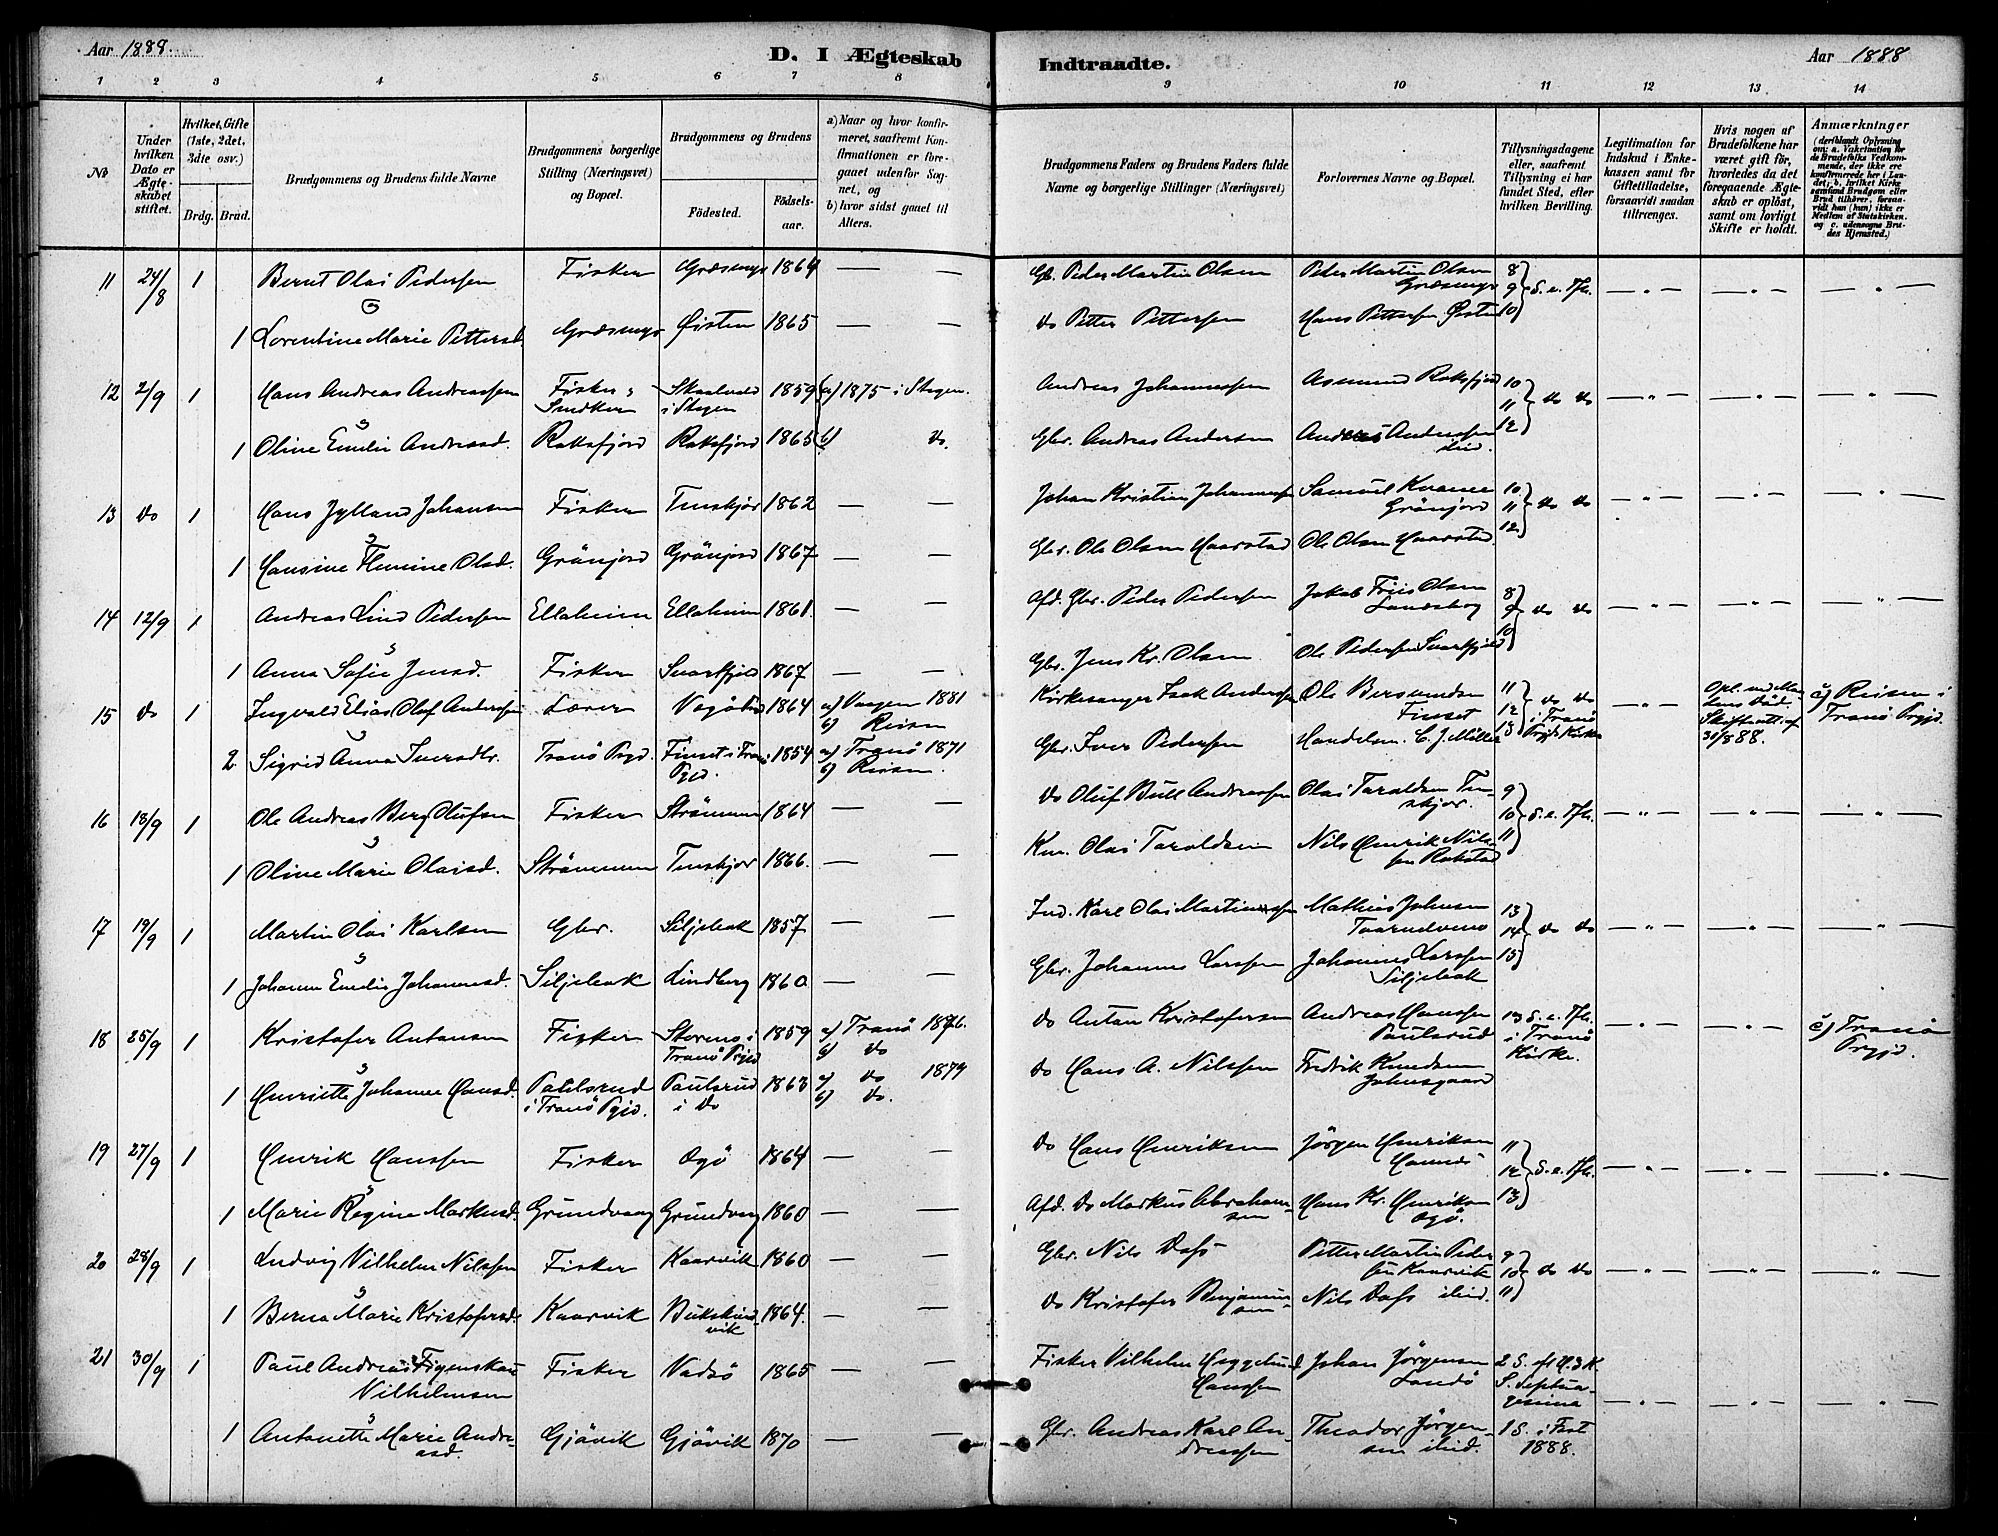 Aar 1888.
D. I Ægteskab Indtraadte.
Aar 1888
1 2 3 4 5 6 7 8 9 10 11 12 13 14
No
Under hvilken Dato er Ægteskabet stiftet.
Hvilket, Gifte (1ste, 2det, 3die osv.)
Brdg. Brud.
Brudgommens og Brudens fulde Navne
Brudgommens borgerlige Stilling (Næringsvei) og Bopæl.
Brudgommens og Brudens
Fødested.
Fødselsaar.
a) Naar og hvor konfirmeret, saafremt Konfirmationen er foregaaet udenfor Sognet, og
b) hvor sidst gaaet til Alters.
Brudgommens Faders og Brudens Faders fulde Navne og borgerlige Stillinger (Næringsvei)
Forlovernes Navne og Bopæl.
Tillysningsdagene eller, saafremt Tillysning ei har fundet Sted, efter hvilken Bevilling.
Legitimation for Indskud i Enkekassen samt for Giftetilladelse, forsaavidt saadan tiltrænges.
Hvis nogen af Brudefolkene har været gift før, hvorledes da det foregaaende Ægteskab er opløst, samt om lovligt Skifte er holdt.
Anmærkninger (deriblandt Oplysning om: a. Vakcination for de Brudefolks Vedkommende, der ikke ere konfirmerede her i Landet; b. hvilket Kirkesamfund Brudgom eller Brud tilhører, forsaavidt han (hun) ikke er Medlem af Statskirken, og c. udensogns Brudes Hjemsted.)
11 24/8 1 Bernt Olai Pedersen Fisker Græsmyr 1864 — — Gb. Peder Martin Olsen Peder Martin Olsen Græsmyr 8 9 10 S. e. Tfh. — " — — " — — " —
&
1 Lorentine Marie Pettersd. Græsmyr Øisten 1865 — — do Petter Pettersen Hans Pettersen Østen
12 2/9 1 Hans Andreas Andreassen Fisker & Snedker Skaalvold i Stegen 1859 a) 1875 i Stegen. Andreas Johannessen Asmund Roksfjord 10 11 12 do do — " — — " — — " —
&
1 Oline Emilie Andreasd. Roksfjord Roksfjord 1865 b) do. Gbr. Andreas Andersen Andreas Andersen ibid.
13 do 1 Hans Jylland Johansen Fisker Tenskjær 1862 — — Johan Kristian Johannessen Samuel Kræmer Grönjord 10 11 12 do do — " — — " — — " —
&
1 Hansine Flemine Olsd. Grönjord Grönjord 1867 — — Gbr. Ole Olsen Haarstad Ole Olsen Haarstad.
14 12/9 1 Andreas Lind Pedersen Elleheim Elleheim 1861. — — Afd. Gbr. Peder Pedersen Jakob Friis Olsen 8 9 10 do do — " — — " — — " —
&
1 Anna Sofie Jensd. Fisker Svartfjeld 1867 — — Gbr. Jens Kr. Olsen Ole Pedersen Svartfjeld
15 do 1 Ingvald Elias Oluf Andersen Lærer 1864 a) Vaagen 1881 b) Reisen Kirkesanger Isak Andersen Ole Bersvendsen Finset 11 12 13 do do i Tranö Prgjds Kirke — " — Opl. ved Mandens Död. Skifteatt. af 30/8 88. c) Reisen i Tranö Prgjd.
&
2 Sigrid Anna Iversdtr. Tranö Pgd. Finset i Tranö Pgjd. 1854 a) Tranö 1871 b) Reisen. Gbr. Iver Pedersen Handelsm. C. J. Müller
16 18/9 1 Ole Andreas Berg Olufsen Fisker Strömmen 1864 — — do Oluf Bull Andreassen Olai Taraldsen Tenskjær. 9 10 11 S. e. Tfh. — " — — " — — " —
&
1 Oline Marie Olaisd. Strömmen Tenskjær 1866. — — Olai Taraldsen Nils Henrik Nilssen Rokstad
17 19/9 1 Martin Olai Karlsen Gbr. Siljebak 1857 — — Ind. Karl Olai Martinussen Mathias Johnsen 13 14 15 do do — " — — " — — " —
&
1 Johanna Emilie Johannesd. Siljebak Lindberg 1860 — — Gbr. Johannes Larssen Johannes Larssen Siljebak
18 25/9 1 Kristofer Antonsen Fisker Stormo i Tranö Prgjd 1859 a) Tranö 1876. b) do do Anton Kristofersen Andreas Hanssen Paulsrud 13 S. e. Tfh. i Tranö Kirke. — " — — " — c) Tranö Prgjd.
&
1 Henriette Johanne Hansd. Paulsrud i Tranö Pgjd. Paulsrud i do 1863 a) do 1879 b) do. do Hans A. Nilssen Fredrik Knudsen Johnsgaard
19 27/9 1 Henrik Hanssen Fisker Ogö 1864 — — do Hans Henriksen Jörgen Henriksen 11 12 13 S. e. Tfh. — " — — " — — " —
&
1 Marie Regine Markusd. Grundvaag Grundvaag 1860 — — Afd. do Markus Abrahamsen Hans Kr. Henriksen Ogö.
20 28/9 1 Ludvig Vilhelm Nilssen Fisker Kaarvik 1860 — — Gbr. Nils Dass Petter Martin Pedersen Kaarvik 9 10 11 do do — " — — " — — " —
&
1 Berna Marie Kristofersd. Kaarvik Bukskindvik 1864. — — do Kristofer Benjaminsen Nils Dass ibid.
21 30/9 1 Paul Andreas Figenskau Vilhelmsen Fisker Vadsö 1865 — — Fisker Vilhelm Heggelund Hanssen Johan Jörgensen Sandö 2 S. eft. H. 3 K. S. Septuagesima 1 S. i Fast 1888. — " — — " — — " —
&
1 Antonette Marie Andreasd. Gjövik Gjövik 1870 — — Gbr. Andreas Karl Andreassen Theodor Jörgensen ibid.